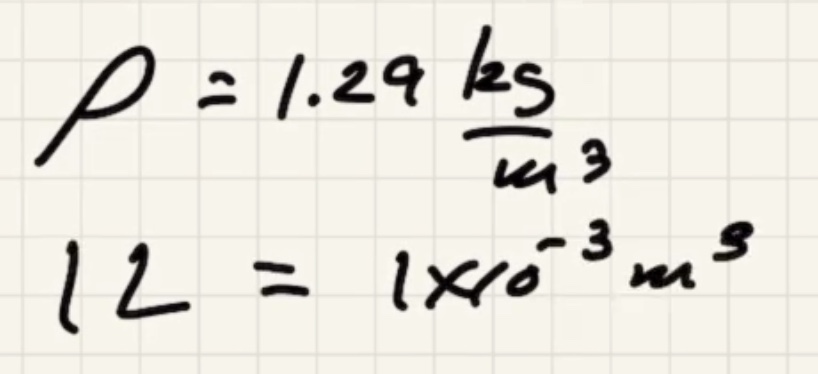 ρ = 1.29 kg/m³
1L = 1×10⁻³ m³